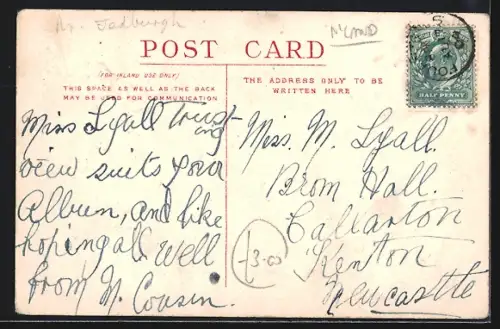 Nr. Jedburgh
N'LAND
POST CARD
(FOR INLAND USE ONLY.)
THIS SPACE AS WELL AS THE BACK
MAY BE USED FOR COMMUNICATION
THE ADDRESS ONLY TO BE
WRITTEN HERE
HALF PENNY
Miss Lyall trust-
ing
view suits your
Album, and like
hoping all well
from M. Cousin.
£3.00
Miss. M. Lyall.
Brom Hall.
Callarton
Kenton
Newcastle